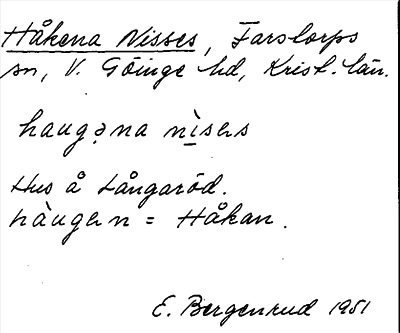 Håkena Nisses, Farstorps
sn, V. Göinge hd, Krist. län.
haugəna nìsens
Hus å Långaröd.
hàugen = Håkan.
E. Bergenrud 1951